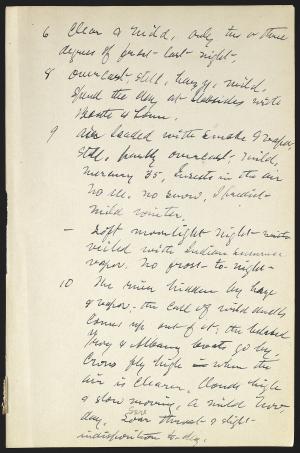 6 Clear & mild, only two or three
degrees of frost last night.
8 overcast, still, hazy, mild.
Spend the day at Slabsides with
9 Air loaded with smoke & vapor
still, partly overcast, mild,
Mercury 35, Insects in the air
No ice, no snow. I predict
mild winter.
— Soft moonlight night -
veiled with Indian summer
vapor. No frost to-night -
10 The river hidden by haze
& vapor - the call of wild ducks
comes up out of it, the belated
Troy & Albany boats go by.
Crows fly high when the
air is clearer. Clouds high
& slow moving. A mild Nov.
day. Sore throat & slight
indisposition to-day.